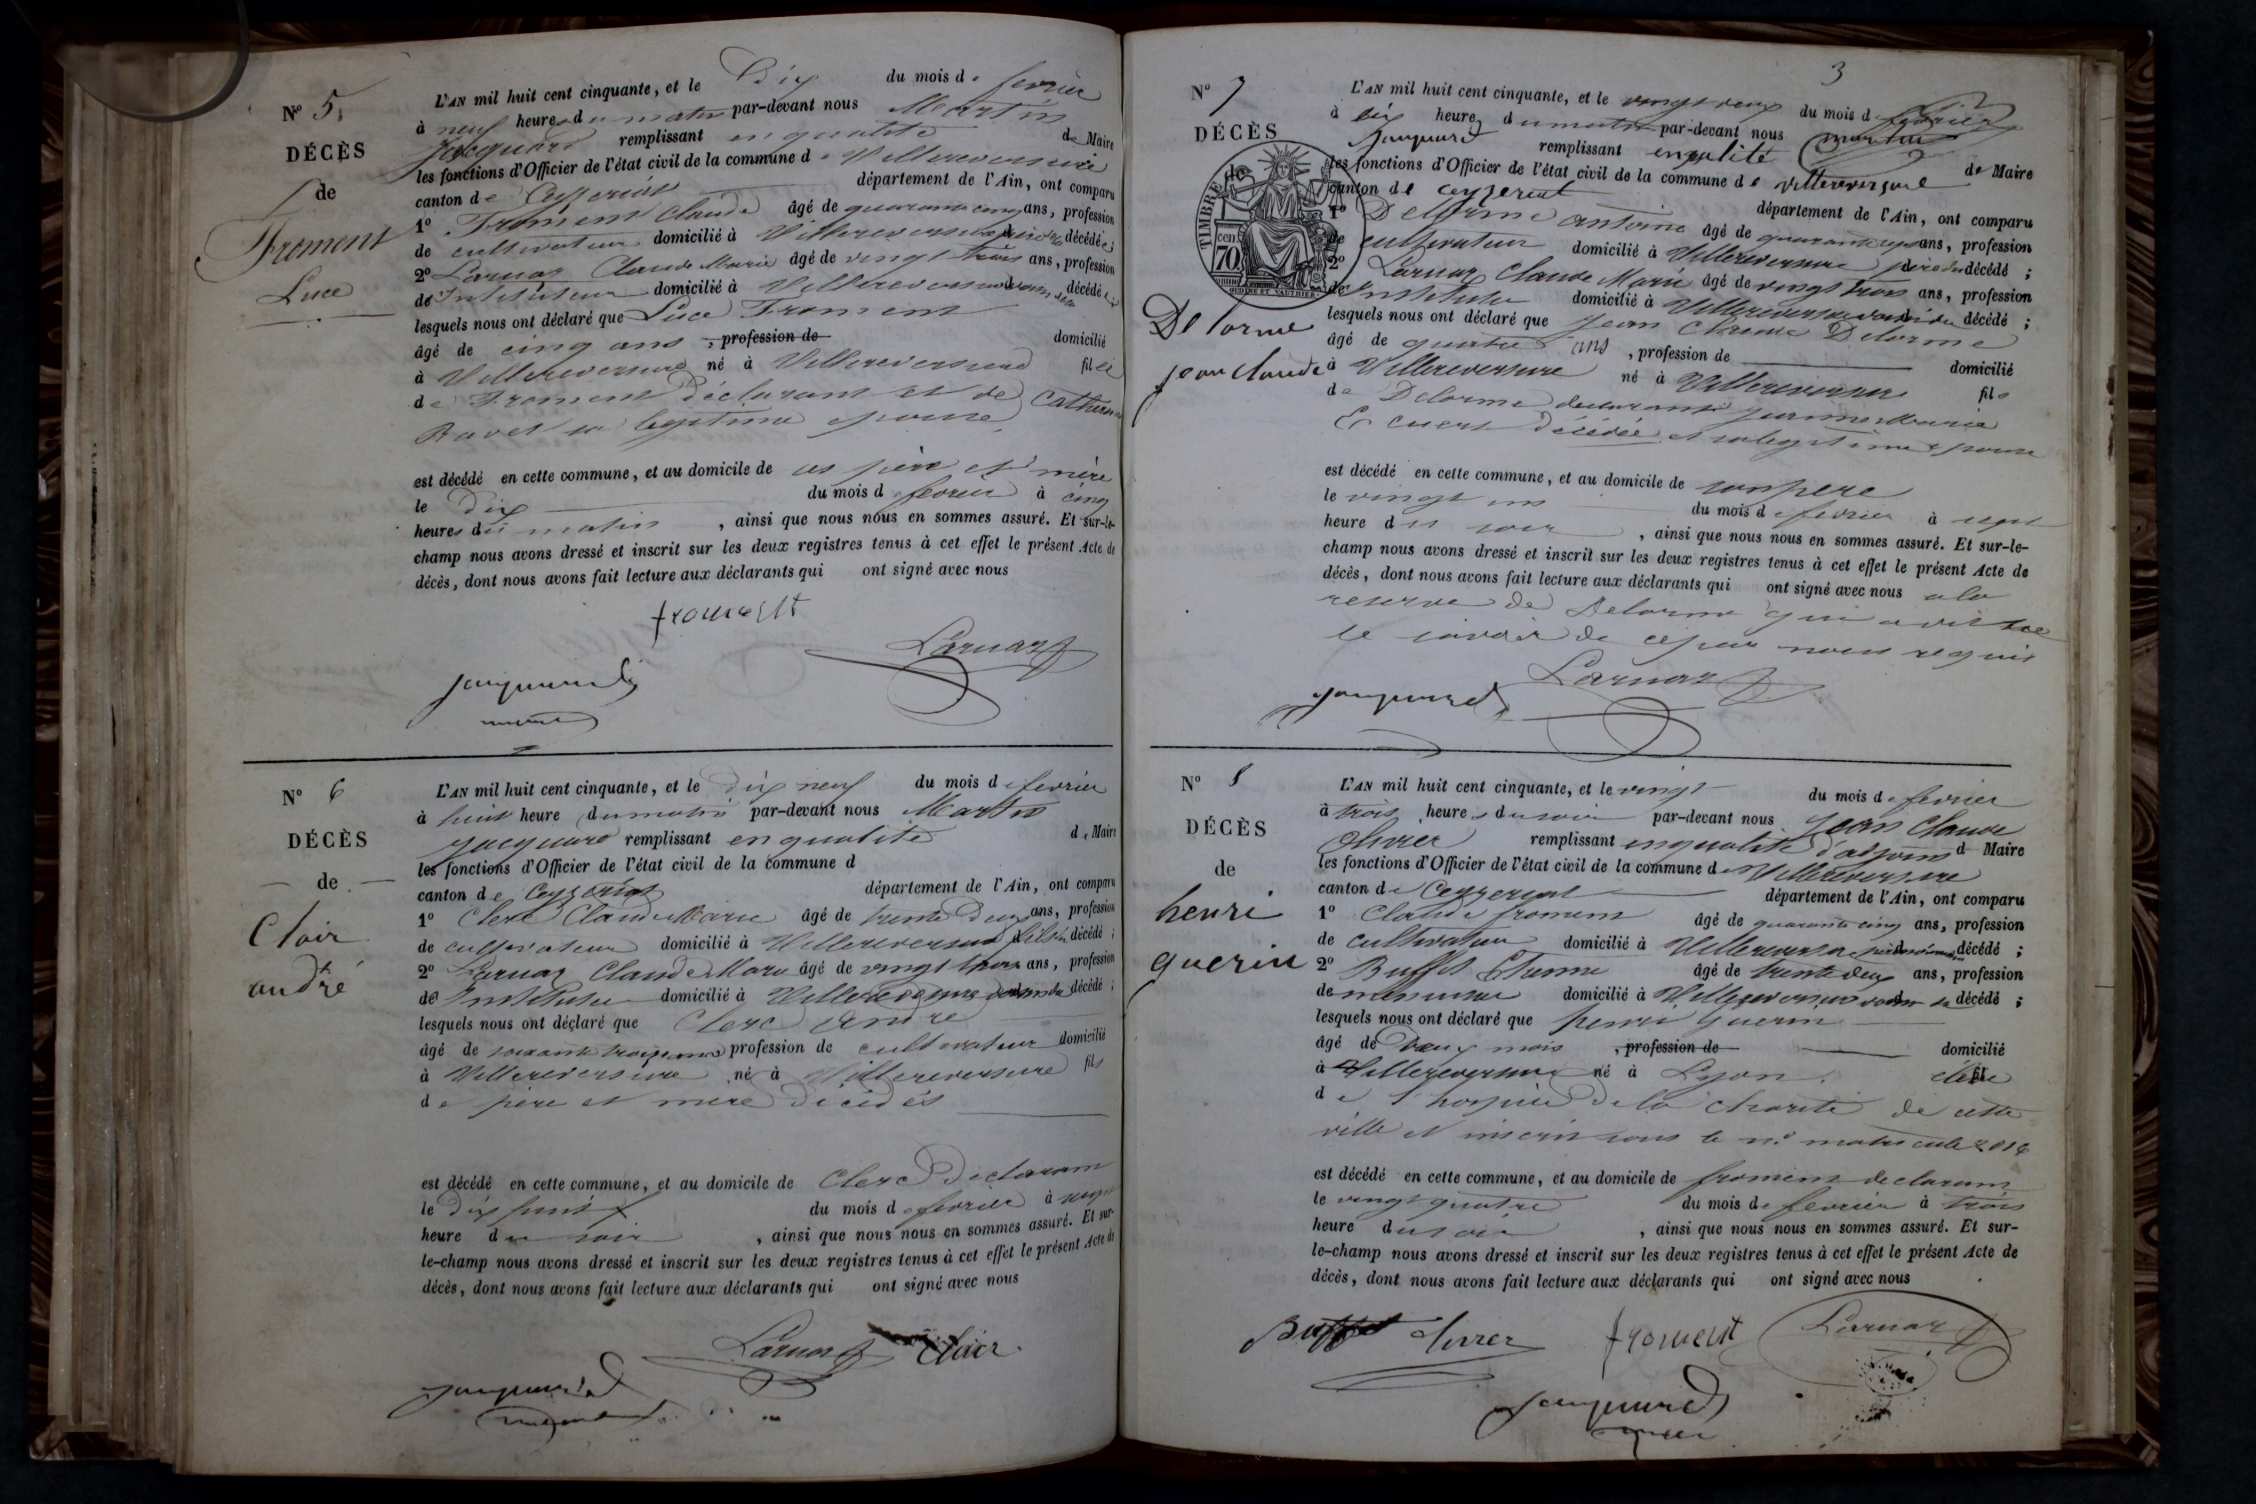 N° 5.
DÉCÈS
de
Froment
Luce
L'AN mil huit cent cinquante, et le Dix du mois de fevrier
à neuf heures du matin par-devant nous Martin
Jacquard remplissant en qualité de Maire
les fonctions d'Officier de l'état civil de la commune de Villereversure
canton de Ceyzeriat département de l'Ain, ont comparu
1° Froment Claude âgé de quarante cinq ans, profession
de cultivateur domicilié à Villereversure père de la décédée;
2° Larnaz Claude Marie âgé de vingt trois ans, profession
de Instituteur domicilié à Villereversure voisin de la décédée
lesquels nous ont déclaré que Luce Froment
âgé de cinq ans , profession de domicilié
à Villereversure né à Villereversure fille
de Froment déclarant et de Catherine
Ravet sa légitime epouse
est décédé en cette commune, et au domicile de ses père et mère
le Dix du mois de fevrier à cinq
heures du matin , ainsi que nous nous en sommes assuré. Et sur-le-
champ nous avons dressé et inscrit sur les deux registres tenus à cet effet le présent Acte de
décès, dont nous avons fait lecture aux déclarants qui ont signé avec nous
froment
Larnaz
Jacquard
N° 6
DÉCÈS
de
Clair
andré
L'AN mil huit cent cinquante, et le dix neuf du mois de fevrier
à huit heure du matin par-devant nous Martin
Jacquard remplissant en qualité de Maire
les fonctions d'Officier de l'état civil de la commune d
canton de Ceyzeriat département de l'Ain, ont comparu
1° Clerc Claude Marie âgé de trente deux ans, profession
de cultivateur domicilié à Villereversure fils du décédé;
2° Larnaz Claude Marie âgé de vingt trois ans, profession
de Instituteur domicilié à Villereversure voisin du décédé;
lesquels nous ont déclaré que Clerc andré
âgé de soixante treize ans profession de cultivateur domicilié
à Villereversure né à Villereversure fils
de père et mère décédés
est décédé en cette commune, et au domicile de Clerc Déclarant
le dix huit du mois de fevrier à sept
heure du soir , ainsi que nous nous en sommes assuré. Et sur-
le-champ nous avons dressé et inscrit sur les deux registres tenus à cet effet le présent Acte de
décès, dont nous avons fait lecture aux déclarants qui ont signé avec nous
Larnaz Clair
Jacquard
3
N° 7
DÉCÈS
de
TIMBRE
70 cen
Delorme
jean Claude
L'AN mil huit cent cinquante, et le vingt deux du mois de fevrier
à dix heure du matin par-devant nous martin
Jacquard remplissant en qualité de Maire
les fonctions d'Officier de l'état civil de la commune de villereversure
canton de ceyzeriat département de l'Ain, ont comparu
1° Delorme antoine âgé de quarante sept ans, profession
de cultivateur domicilié à Villereversure père du décédé;
2° Larnaz Claude Marie âgé de vingt trois ans, profession
de Instituteur domicilié à Villereversure voisin du décédé;
lesquels nous ont déclaré que Jean Claude Delorme
âgé de quatre ans , profession de domicilié
à Villereversure né à Villereversure fils
de Delorme declarant jeanne Marie
décédée sa legitime epouse
est décédé en cette commune, et au domicile de son pere
le vingt un du mois de fevrier à sept
heure du soir , ainsi que nous nous en sommes assuré. Et sur-le-
champ nous avons dressé et inscrit sur les deux registres tenus à cet effet le présent Acte de
décès, dont nous avons fait lecture aux déclarants qui ont signé avec nous a la
reserve de Delorme qui a dit ne
le savoir de ce par nous requis
Larnaz
Jacquard
N° 8
DÉCÈS
de
henri
guerin
L'AN mil huit cent cinquante, et le vingt du mois de fevrier
à trois heures du soir par-devant nous Jean Claude
Olivier remplissant en qualité d'adjoint d Maire
les fonctions d'Officier de l'état civil de la commune de Villereversure
canton de Ceyzeriat département de l'Ain, ont comparu
1° Claude froment âgé de quarante cinq ans, profession
de cultivateur domicilié à Villereversure décédé;
2° Buffet Etienne âgé de trente deux ans, profession
de menuisier domicilié à Villereversure voisin du décédé;
lesquels nous ont déclaré que henri guerin
âgé de Deux mois , profession de domicilié
à Villereversure né à Lyon. élève
de l'hospice de la charité de cette
ville et inscrit sous le n° matricule 2016
est décédé en cette commune, et au domicile de froment declarant
le vingt quatre du mois de fevrier à trois
heure du soir , ainsi que nous nous en sommes assuré. Et sur-
le-champ nous avons dressé et inscrit sur les deux registres tenus à cet effet le présent Acte de
décès, dont nous avons fait lecture aux déclarants qui ont signé avec nous
Buffet froment Larnaz
Jacquard